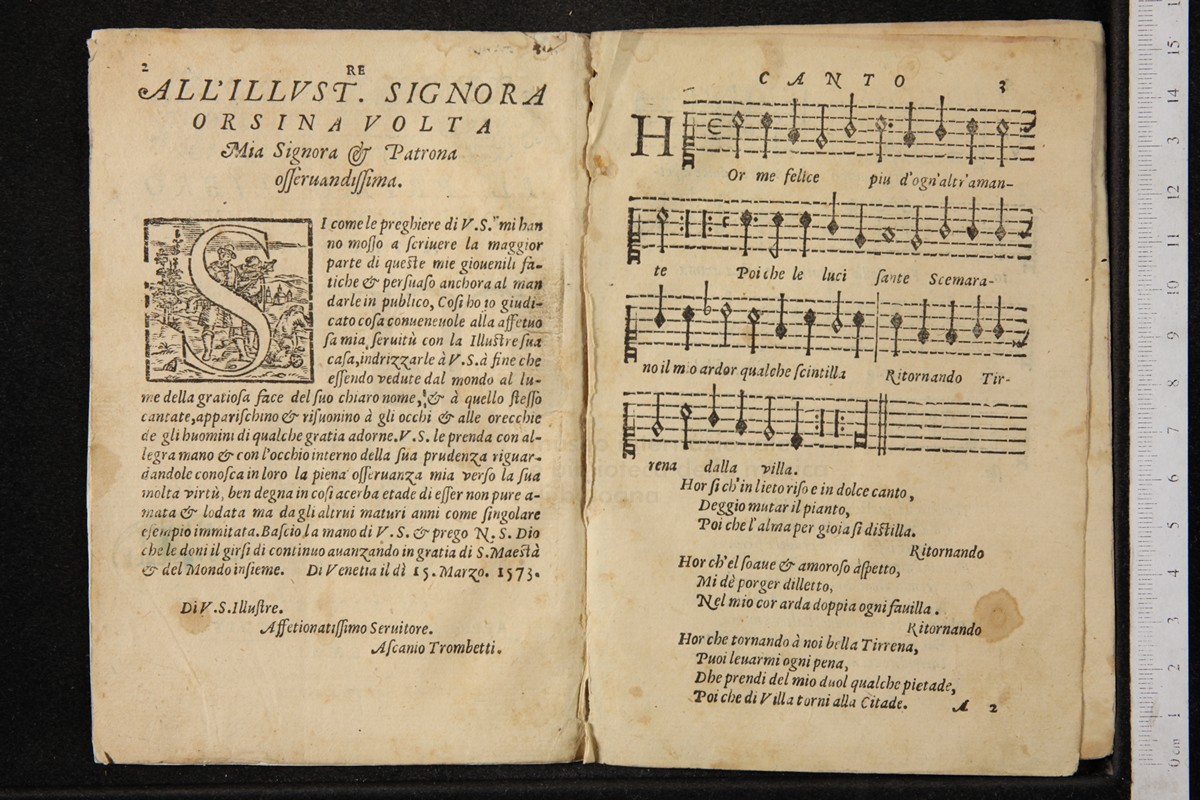 2
RE
ALL'ILLVST. SIGNORA
ORSINA VOLTA
Mia Signora & Patrona
osseruandissima.
SI come le preghiere di V.S. mi han
no mosso a scriuere la maggior
parte di queste mie giouenili fa-
tiche & persuaso anchora al man
darle in publico, Cosi ho io giudi-
cato cosa conueneuole alla affetuo
sa mia seruitù con la Illustre sua
casa, indrizzarle à V.S. à fine che
essendo vedute dal mondo al lu-
me della gratiosa face del suo chiaro nome, & à quello stesso
cantate, apparischino & risuonino à gli occhi & alle orecchie
de gli huomini di qualche gratia adorne. V.S. le prenda con al-
legra mano & con l'occhio interno della sua prudenza riguar-
dandole conosca in loro la piena osseruanza mia verso la sua
molta virtù, ben degna in cosi acerba etade di esser non pure a-
mata & lodata ma dagli altrui maturi anni come singolare
esempio immitata. Bascio la mano di V.S. & prego N.S. Dio
che le doni il girsi di continuo auanzando in gratia di S. Maestà
& del Mondo insieme. Di Venetia il dì 15. Marzo. 1573.
Di V.S. Illustre.
Affetionatissimo Seruitore.
Ascanio Trombetti.
CANTO
3
HOr me felice piu d'ogn'altr'aman-
te Poi che le luci sante Scemara-
no il mio ardor qualche scintilla Ritornando Tir-
rena dalla villa.
Hor si ch'in lieto riso e in dolce canto,
Deggio mutar il pianto,
Poi che l'alma per gioia si distilla.
Ritornando
Hor ch'el soaue & amoroso aspetto,
Mi dè porger dilletto,
Nel mio cor arda doppia ogni fauilla.
Ritornando
Hor che tornando à noi bella Tirrena,
Puoi leuarmi ogni pena,
Dhe prendi del mio duol qualche pietade,
Poi che di Villa torni alla Citade.
A 2
15
14
13
12
11
10
9
8
7
6
5
4
3
2
1
0 cm